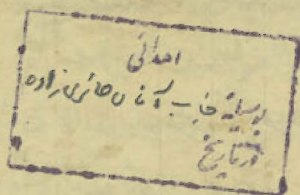 اهدائی
بوسیله جناب آقای حائری زاده
در تاریخ